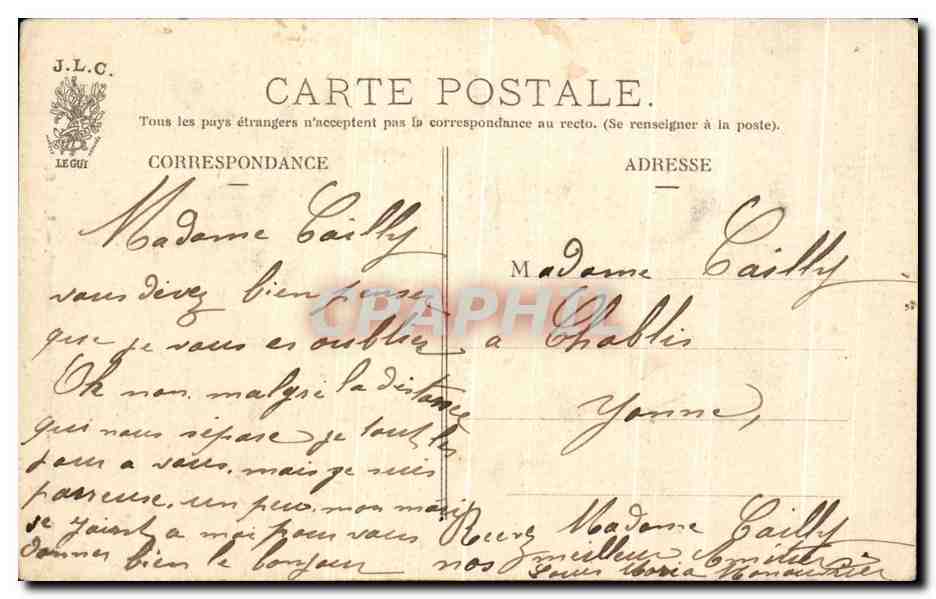 J.L.C.
LE GUI
CARTE POSTALE.
Tous les pays étrangers n'acceptent pas la correspondance au recto. (Se renseigner à la poste).
CORRESPONDANCE
Madame Cailly
vous devez bien penser
que je vous es oublier
Oh non. malgré la distance
qui nous sépare je tout les
jour a vous. mais je suis
parreuse. un peu. mon mari
se joint a moi pour vous
donner bien le bonjour
ADRESSE
Madame Cailly
a Chablis
Yonne,
Recevez Madame Cailly
nos meilleur Amitier
Louis Maria
CPAPHIL